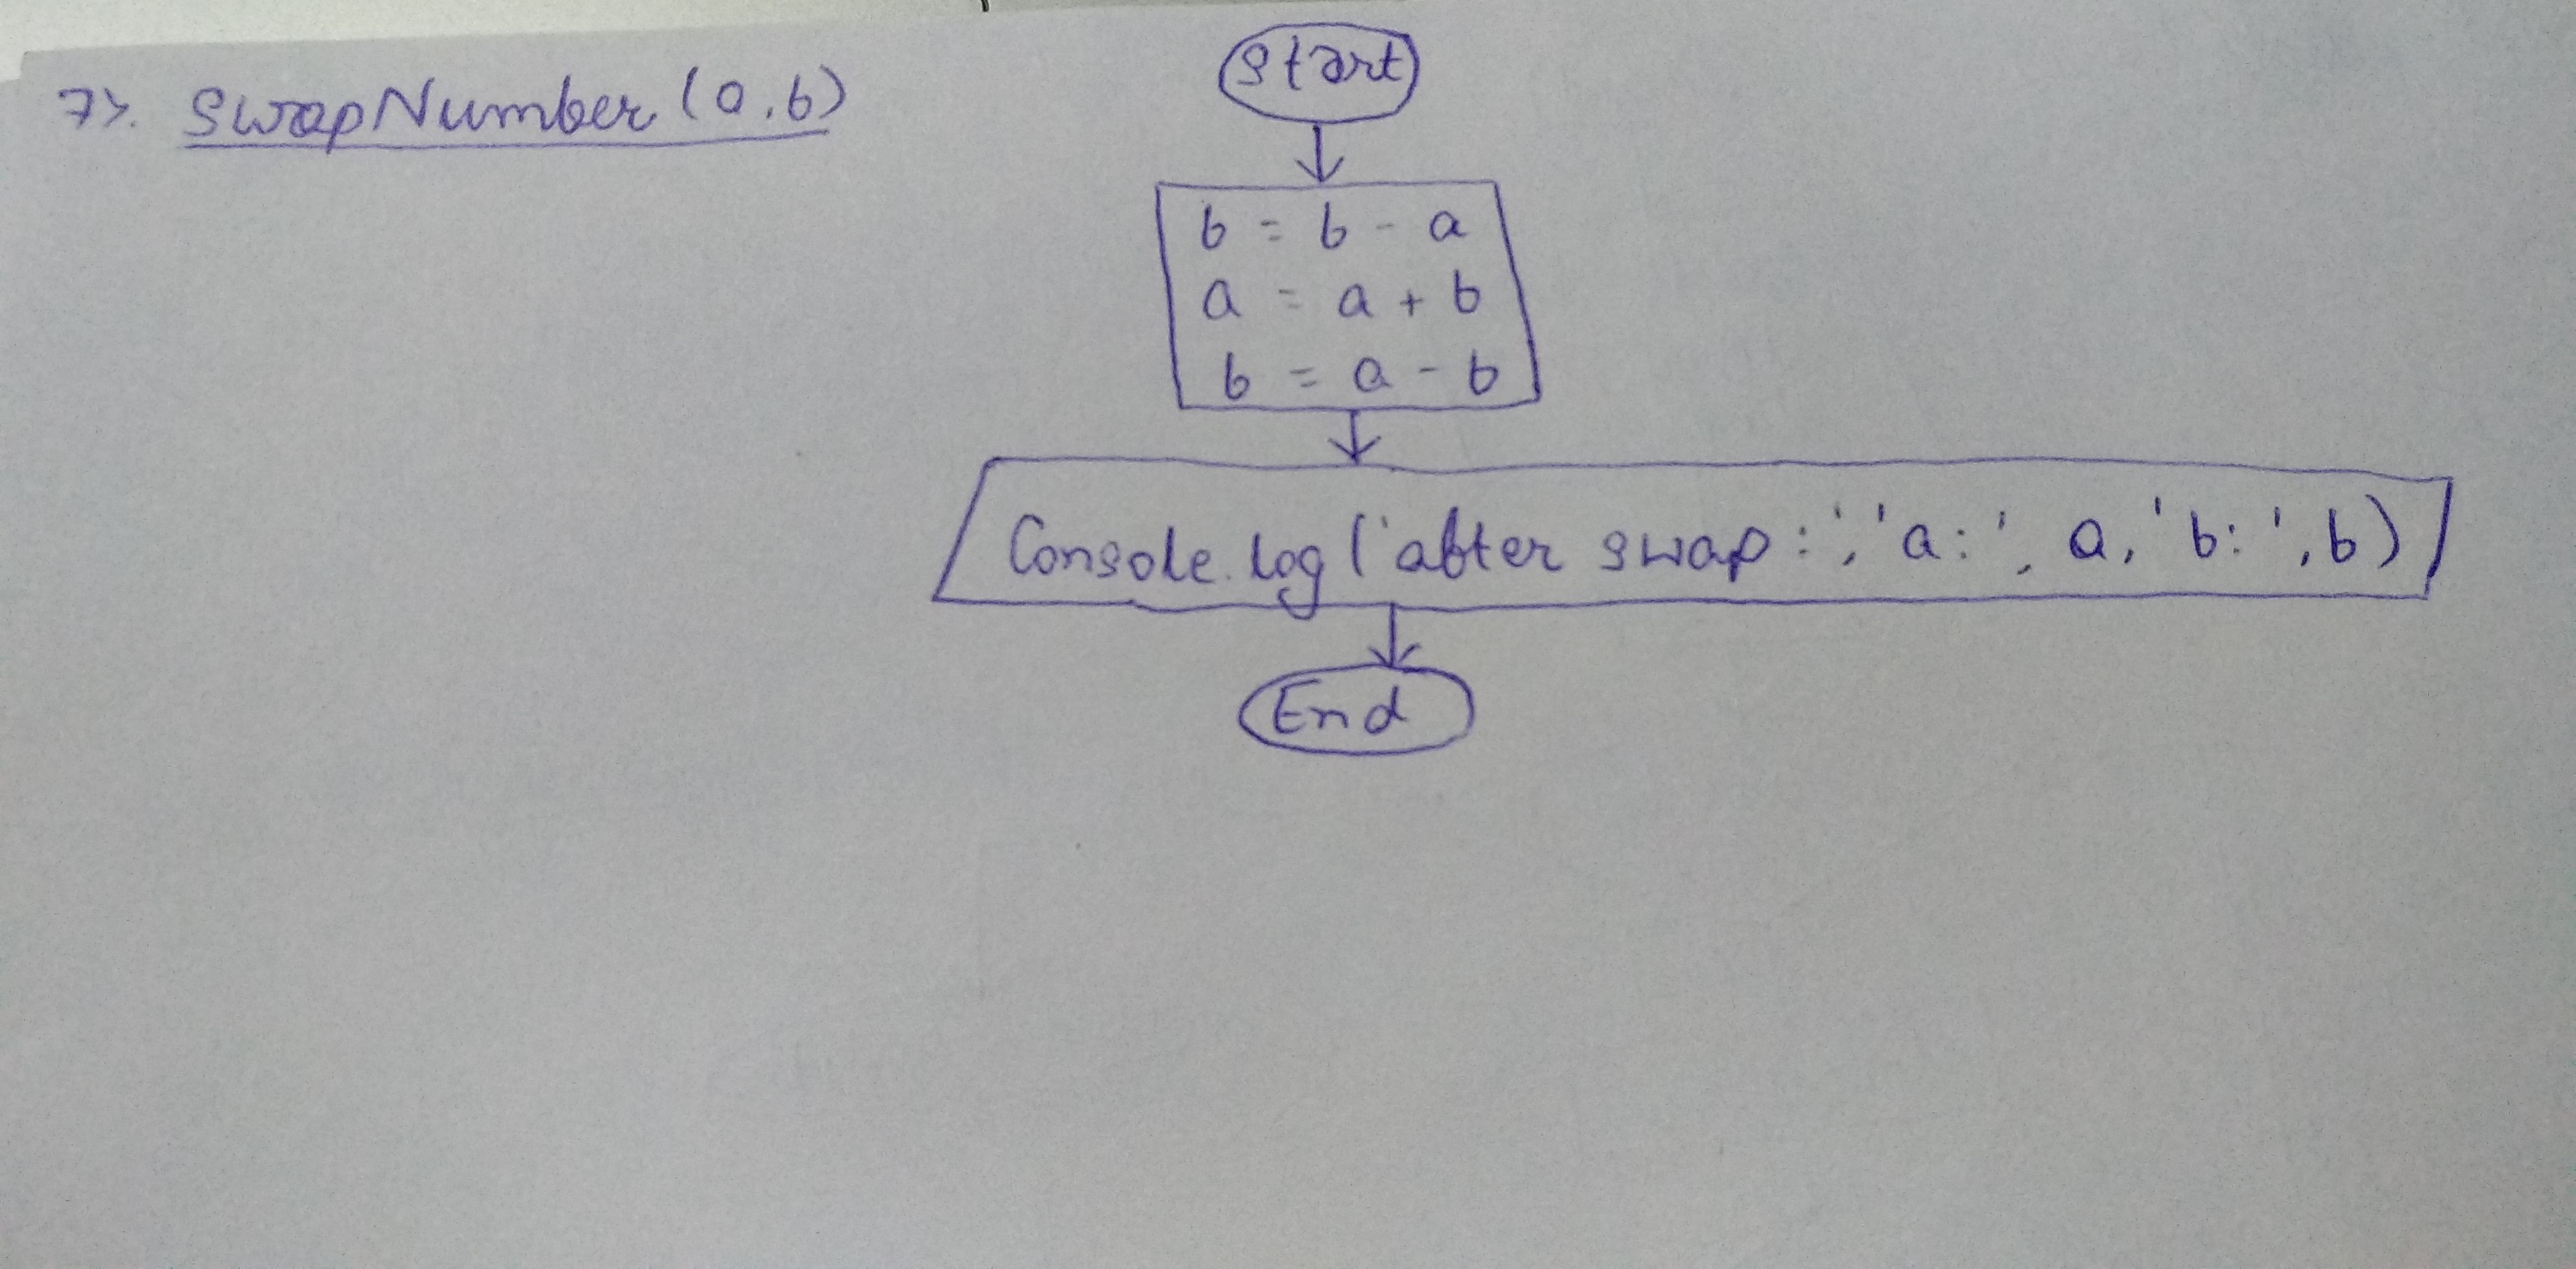 7>. swapNumber(a,b)
start
b = b - a
a = a + b
b = a - b
Console.log('after swap:','a:', a,'b:',b)
End